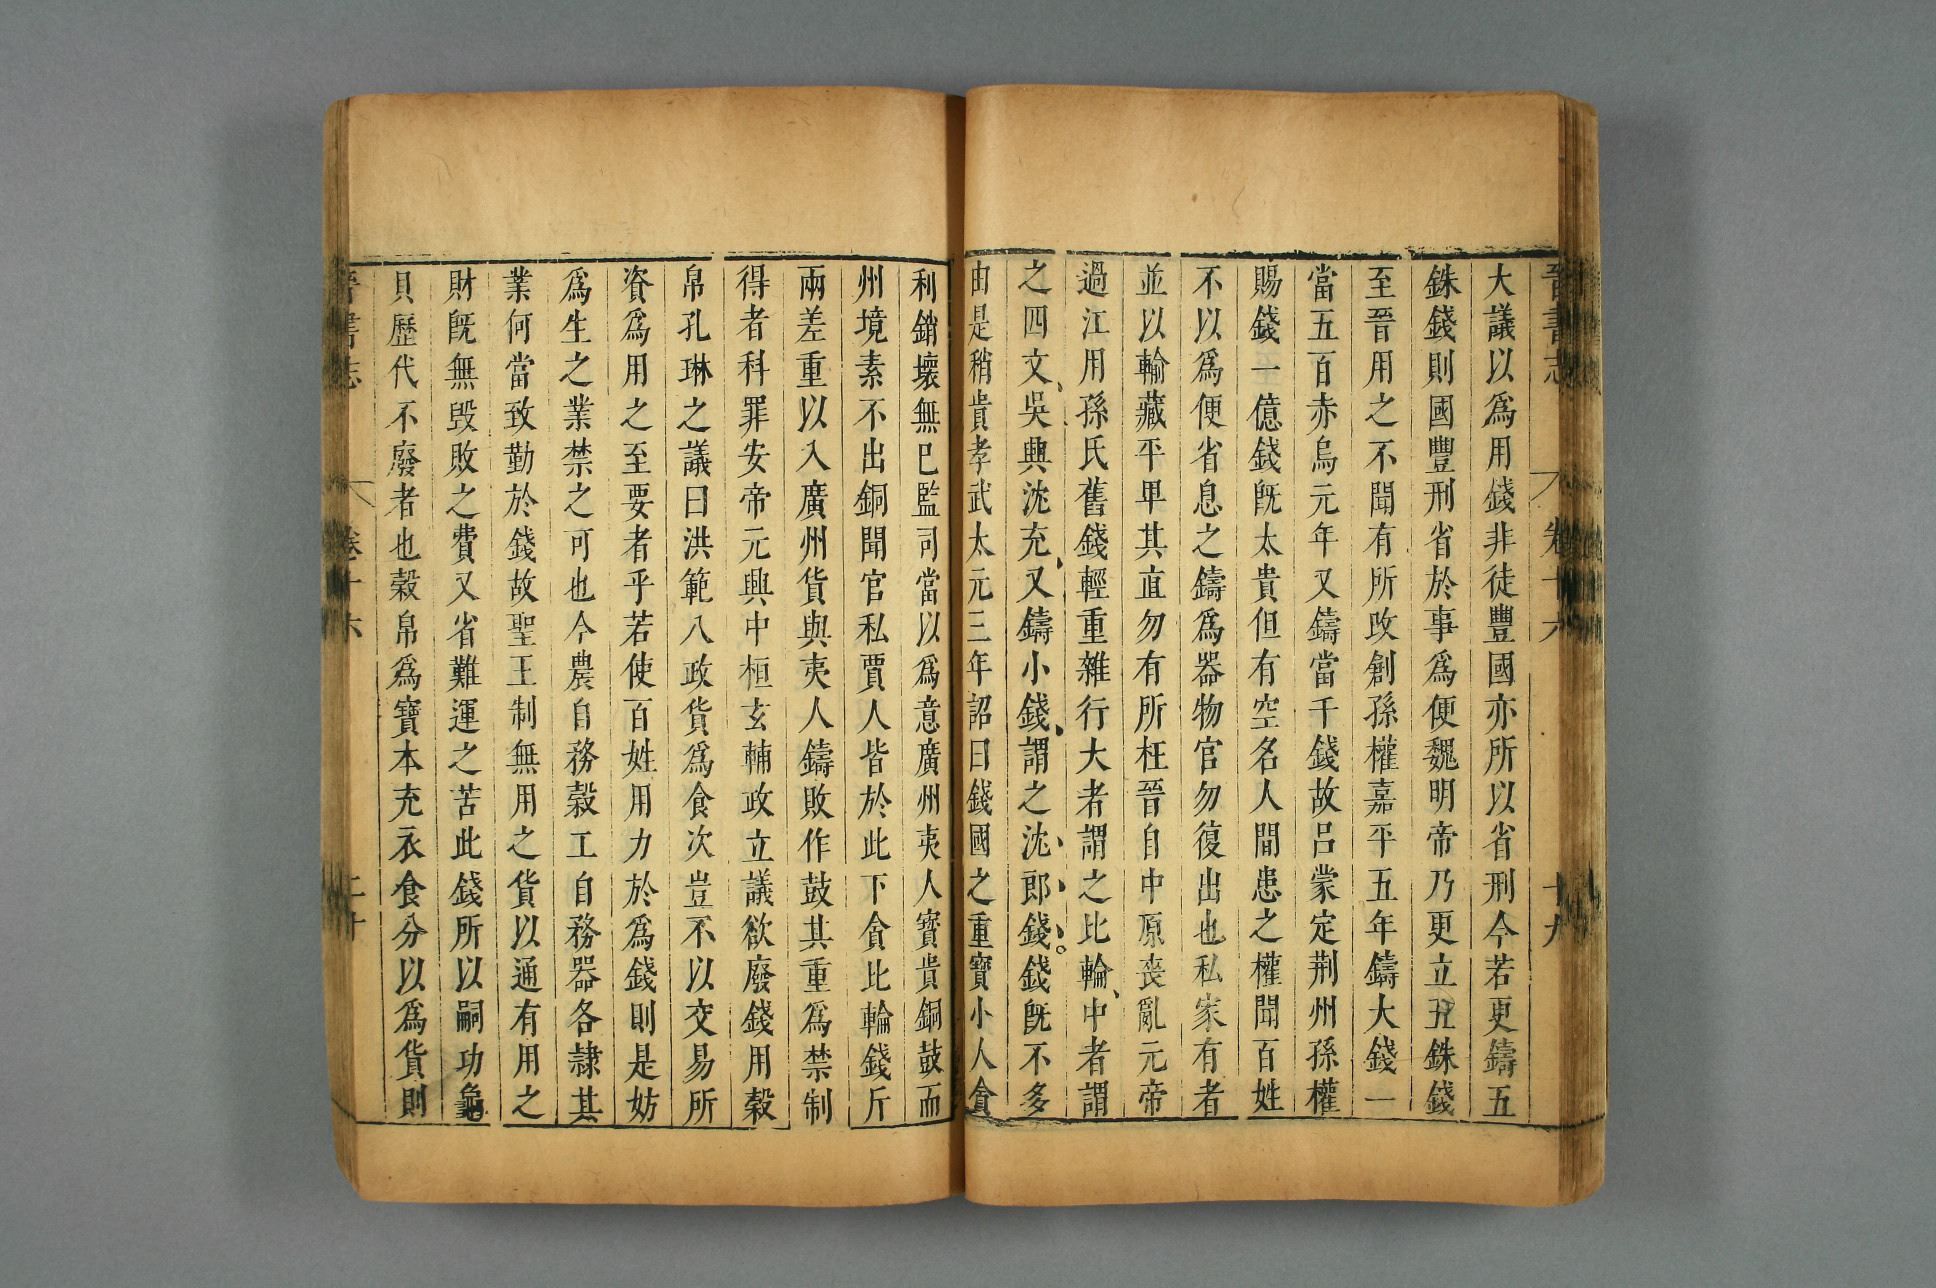 晉書志 卷十六 十九
大議以爲用錢非徒豐國亦所以省刑今若更鑄五
銖錢則國豐刑省於事爲便魏明帝乃更立五銖錢
至晉用之不聞有所改創孫權嘉平五年鑄大錢一
當五百赤烏元年又鑄當千錢故呂蒙定荆州孫權
賜錢一億錢旣太貴但有空名人間患之權聞百姓
不以爲便省息之鑄爲器物官勿復出也私家有者
並以輸藏平畀其直勿有所枉晉自中原喪亂元帝
過江用孫氏舊錢輕重雜行大者謂之比輪、中者謂
之四文、吳興沈充、又鑄小錢、謂之沈郎錢。錢旣不多
由是稍貴孝武太元三年詔曰錢國之重寶小人貪
利銷壞無已監司當以爲意廣州夷人寶貴銅鼓而
州境素不出銅聞官私賈人皆於此下貪比輪錢斤
兩差重以入廣州貨與夷人鑄敗作鼓其重爲禁制
得者科罪安帝元興中桓玄輔政立議欲廢錢用榖
帛孔琳之議曰洪範八政貨爲食次豈不以交易所
資爲用之至要者乎若使百姓用力於爲錢則是妨
爲生之業禁之可也今農自務榖工自務器各隸其
業何嘗致勤於錢故聖王制無用之貨以通有用之
財旣無毀敗之費又省難運之苦此錢所以嗣功龜
貝歷代不廢者也榖帛爲寶本充衣食分以爲貨則
晉書志 卷十六 二十